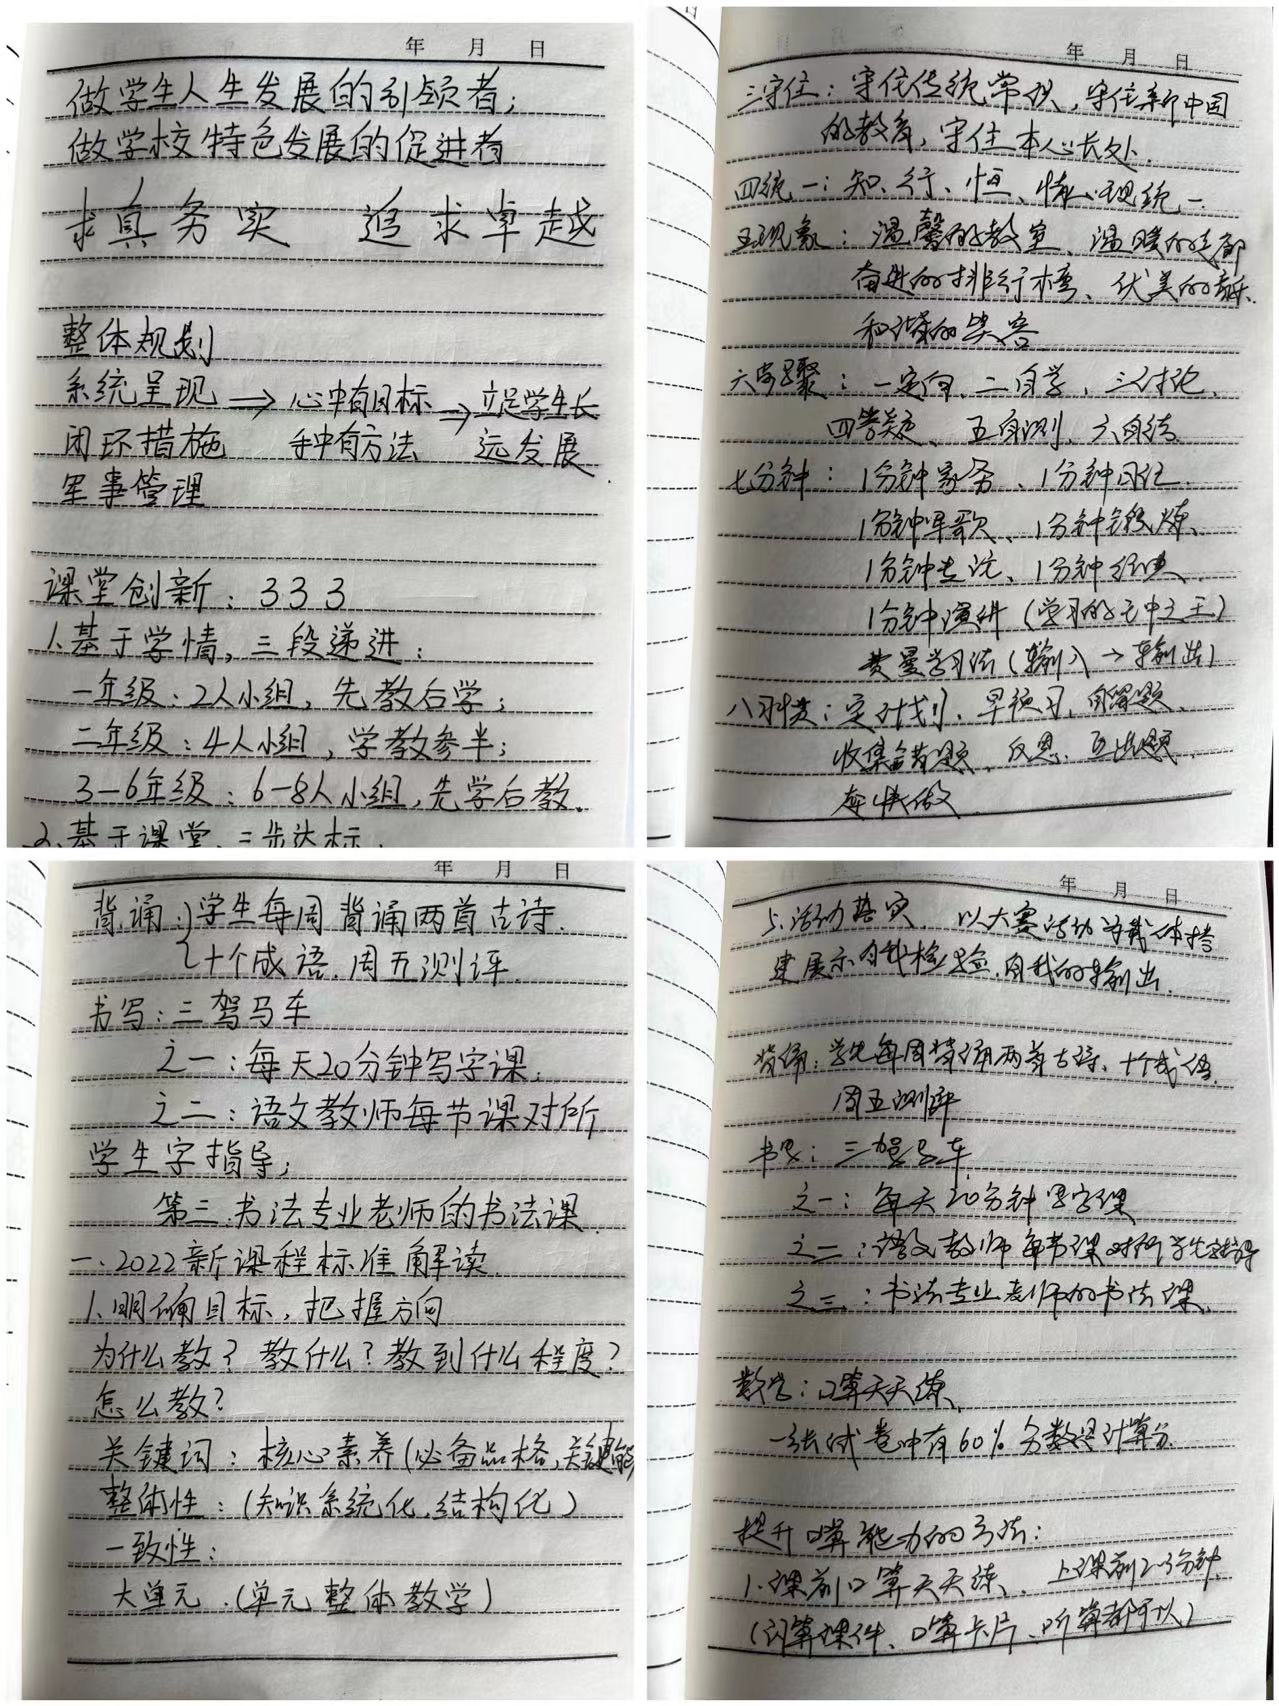 年 月 日
做学生人生发展的引领者;
做学校特色发展的促进者
求真务实 追求卓越
整体规划
系统呈现 → 心中有目标 → 立足学生长
闭环措施 手中有方法 远发展.
军事管理
课堂创新: 333
1.基于学情,三段递进:
一年级:2人小组,先教后学;
二年级:4人小组,学教参半;
3—6年级:6-8人小组,先学后教.
2.基于课堂,三步达标.
年 月 日
三守住:守住传统常识,守住新中国
的教育,守住本心长处.
四统一:知、行、恒、统一
五现象:温馨的教室、温暖的走廊
奋进的排行榜、优美的音乐
和谐的笑容
六步骤:一定向、二自学、三讨论、
四答疑、五自测、六自结
七分钟:1分钟家务、1分钟日记
1分钟军歌、1分钟锻炼、
1分钟、1分钟经典、
1分钟演讲(学习的王中之王)
费曼学习法(输入→输出)
八习惯:定计划、早预习、自解题、
收集错题、反思、互出题、
快做
年 月 日
背诵:{学生每周背诵两首古诗.
十个成语.周五测评.
书写:三驾马车
之一:每天20分钟写字课;
之二:语文教师每节课对所
学生字指导;
第三.书法专业老师的书法课.
一.2022新课程标准解读.
1.明确目标,把握方向
为什么教?教什么?教到什么程度?
怎么教?
关键词:核心素养(必备品格,关键能
整体性:(知识系统化.结构化)
一致性:
大单元.(单元整体教学)
年 月 日
5.活动落实 以大赛活动为载体搭
建展示自我检验,自我的输出.
背诵:学生每周背诵两首古诗、十个成语.
周五测评
书写:三驾马车
之一:每天20分钟写字课
之二:语文教师每节课对所学生字指导
之三:书法专业老师的书法课.
数学:口算天天练、
一张试卷中有60%分数是计算分.
提升口算能力的方法:
1.课前口算天天练、上课前2-3分钟.
(口算课件、口算卡片、听算都可以)